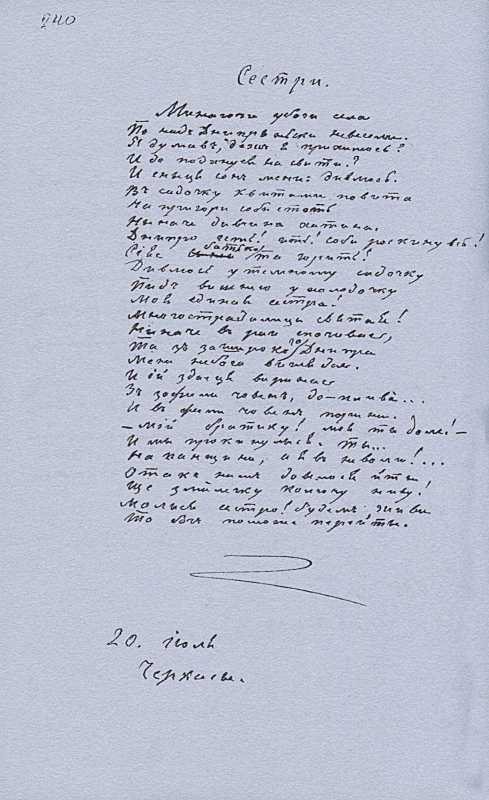 240
Сестри.
Минаючи убоги села
По надъ Днипрьвськи невесели.
Я думавъ, де жъ я прихилюсь?
И де подинуся на свити?
И сныця сонъ мени: дивлюсь.
Въ садочку квитами повита
На пригори соби стоить
Неначе дивчина хатына.
Днипро геть! геть! соби роскинувсь!
Сяє батько! та горить!
Дивлюсь у темному садочку
Пидъ вишнею у холодочку
Моя едыная сестра!
Многострадалица святая!
Неначе въ раи спочивае,
Та зъ за широкого Днипра
Мене небога выгляда.
И ій здаеця вырынає
Зъ за хвыли човень, доплива...
И въ хвыли човенъ порина.
— Мій братику! моя ты доле! —
И мы прокинулысь. Ты...
На панщини, а я въ неволи!...
Отакъ намъ довелося йты
Ще змалечку колючу ниву!
Молися сестро! будемъ живы
То Бгъ поможе перейты.
20. іюля
Черкасы.